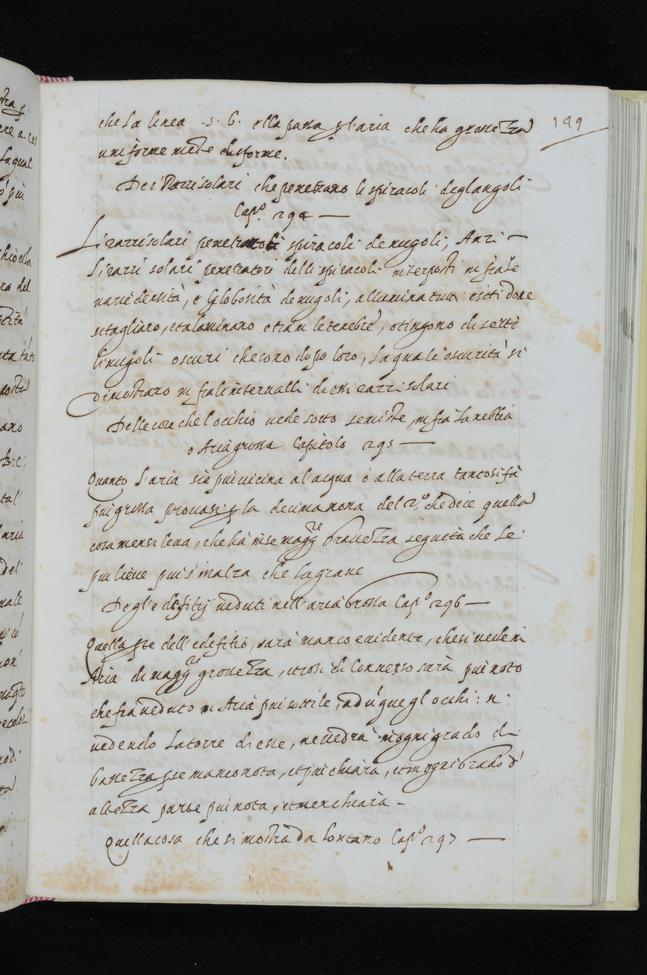 149
che la linea .s. G. ella passa p laria che ha grossezza
uniforme mẽte disforme.
De i Razzi solari che penetrano li spiracoli degl angoli
Cap.º 294
Li razzi solari penetratori spiracoli de nugoli, Anzi
Li razzi solari penetratori delli spiracoli interposti in fra le
varie densità, e globosità de nugoli, alluminan tutti i siti dove
si tagliano, et alluminano etian le tenebre, e tingono di se tti
li nugoli oscuri che sono dopo loro, la quale oscurità si
dimostrano in fra li internalli di essi razzi solari
Delle cose che l'occhio vede sotto se miste, in fra la nebbia
o Aria grossa Capitolo 295
Quanto l'aria sia piu vicina al'acqua o alla terra tanto si fa
piu grossa provasi p la decima nona del 2.º che dice quella
cosa men si leva, che hà in se magg.re gravezza seguita che le
piu lieve piu s'inalza che la grave
Degl'edifitij veduti nell'aria grossa Cap.º 296
Quella pte dell'edefitio, sarà manco evidente, che si vede in
Aria di magg.re grossezza, et cosi di Converso sarà piu noto
che fia veduto in Aria piu sottile, adũque gl'occhi: n.
vedendo la torre di esse, ne vedrà in ogni grado di
bassezza pte manco nota, et piu chiara, et in ogni grado d'
altezza parte piu nota, et men chiara
Quella cosa che si mostra da lontano Cap.º 297